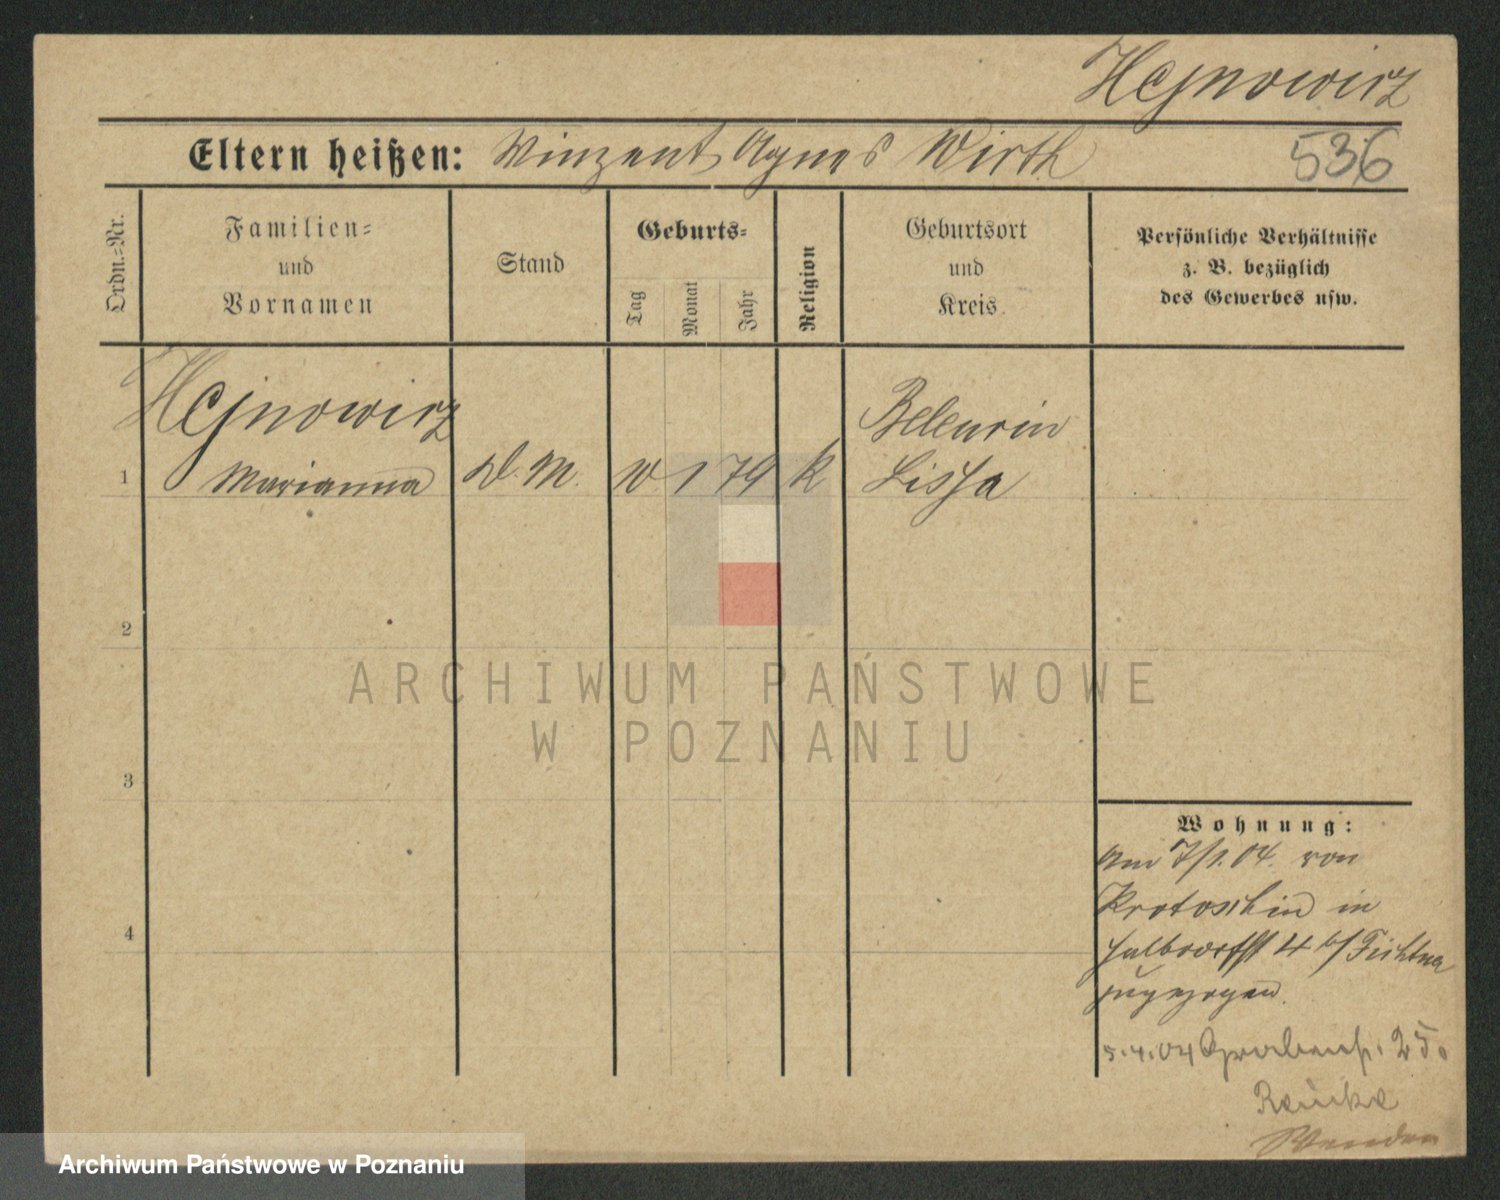 Hejnowicz
Eltern heißen: Winzent, Agnes Wirth
536
Ordn.-Nr.
Familien-
und
Vornamen
Stand
Geburts-
Tag
Monat
Jahr
Religion
Geburtsort
und
Kreis
Persönliche Verhältnisse
z. B. bezüglich
des Gewerbes usw.
Hejnowicz
1 Marianna D. M. 1 79 k
Lissa
2
3
4
ARCHIWUM PAŃSTWOWE
W POZNANIU
Wohnung:
Am 7/1. 04. von
Krotoschin in
Halbdorfst 4 b/
zugezogen.
5.4.04 Grabenst. 25.
Wenden
Archiwum Państwowe w Poznaniu